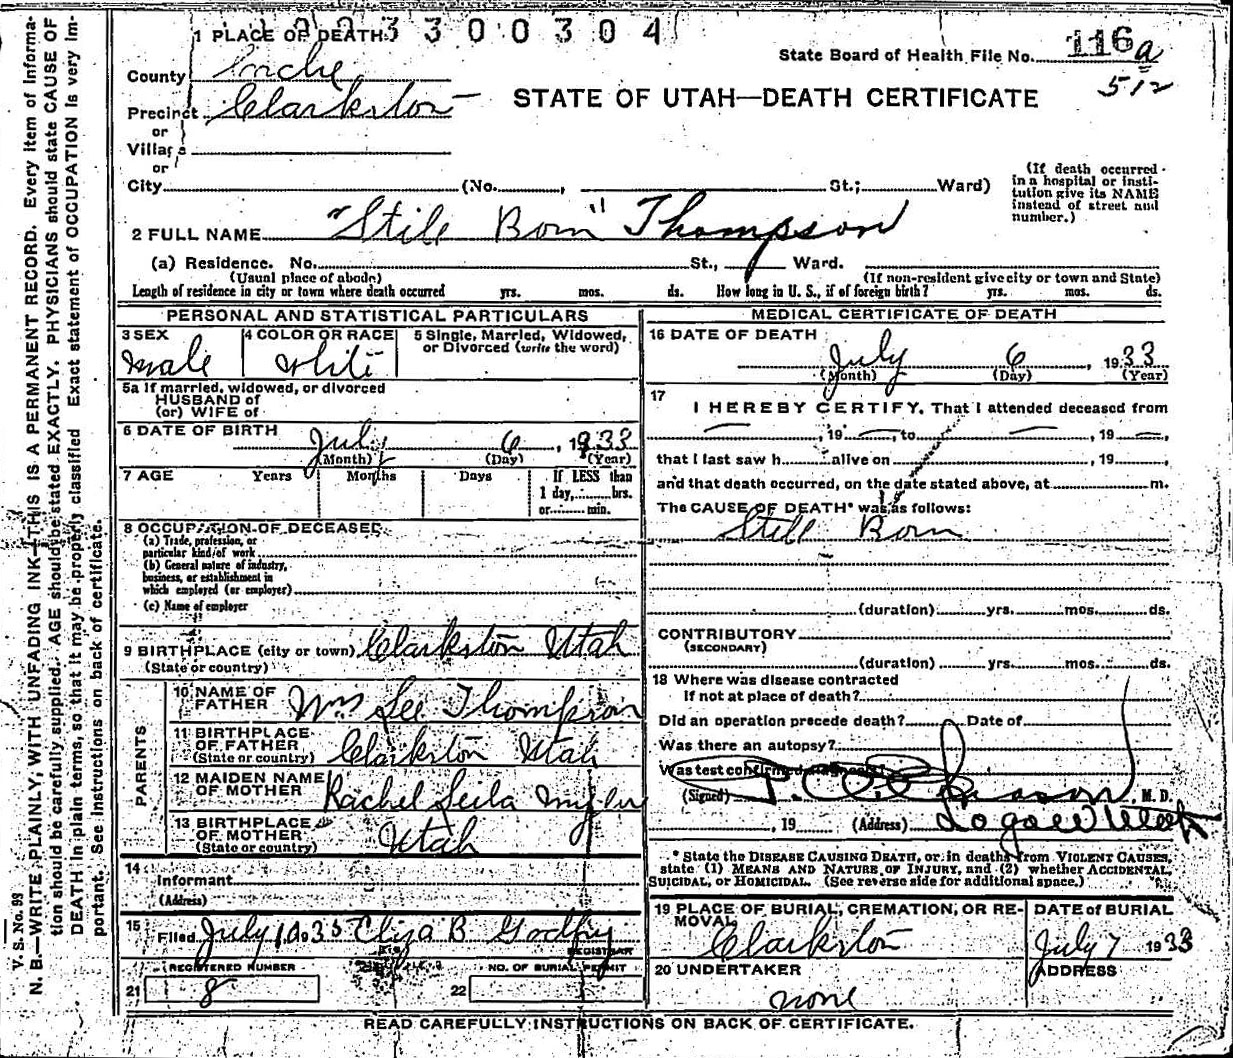 1 PLACE OF DEATH 3300304
State Board of Health File No. 116 a
512
County Cache
Precinct Clarkston
STATE OF UTAH—DEATH CERTIFICATE
or
Village
or
City (No. , St.; Ward)
(If death occurred in a hospital or institution give its NAME instead of street and number.)
2 FULL NAME "Still Born" Thompson
(a) Residence. No. St., Ward.
(Usual place of abode) (If non-resident give city or town and State)
Length of residence in city or town where death occurred yrs. mos. ds. How long in U. S., if of foreign birth? yrs. mos. ds.
PERSONAL AND STATISTICAL PARTICULARS
3 SEX 4 COLOR OR RACE 5 Single, Married, Widowed, or Divorced (write the word)
Male White
5a If married, widowed, or divorced
HUSBAND of
(or) WIFE of
6 DATE OF BIRTH
July 6, 1933
(Month) (Day) (Year)
7 AGE Years Months Days If LESS than
1 day, hrs.
or min.
8 OCCUPATION OF DECEASED
(a) Trade, profession, or
particular kind of work
(b) General nature of industry,
business, or establishment in
which employed (or employer)
(c) Name of employer
9 BIRTHPLACE (city or town) Clarkston Utah
(State or country)
PARENTS
10 NAME OF FATHER Wm Lee Thompson
11 BIRTHPLACE OF FATHER Clarkston Utah
(State or country)
12 MAIDEN NAME OF MOTHER Rachel
13 BIRTHPLACE OF MOTHER Utah
(State or country)
14
Informant
(Address)
15
Filed July 10 1933 Eliza B Godfry
REGISTRAR
REGISTERED NUMBER NO. OF BURIAL PERMIT
21 8 22
MEDICAL CERTIFICATE OF DEATH
16 DATE OF DEATH
July 6, 1933
(Month) (Day) (Year)
17
I HEREBY CERTIFY, That I attended deceased from
— , 19 —, to — , 19 —,
that I last saw h alive on , 19 ,
and that death occurred, on the date stated above, at m.
The CAUSE OF DEATH* was as follows:
Still Born
(duration) yrs. mos. ds.
CONTRIBUTORY
(SECONDARY)
(duration) yrs. mos. ds.
18 Where was disease contracted
If not at place of death?
Did an operation precede death? Date of
Was there an autopsy?
Was test confirmed diagnosis?
(Signed) M. D.
, 19 (Address) Logan Utah
* State the DISEASE CAUSING DEATH, or in deaths from VIOLENT CAUSES, state (1) MEANS AND NATURE OF INJURY, and (2) whether ACCIDENTAL, SUICIDAL, or HOMICIDAL. (See reverse side for additional space.)
19 PLACE OF BURIAL, CREMATION, OR REMOVAL DATE of BURIAL
Clarkston July 7 1933
20 UNDERTAKER ADDRESS
none
READ CAREFULLY INSTRUCTIONS ON BACK OF CERTIFICATE.
V. S. No. 99
N. B.—WRITE PLAINLY, WITH UNFADING INK—THIS IS A PERMANENT RECORD. Every item of Informa-
tion should be carefully supplied. AGE should be stated EXACTLY. PHYSICIANS should state CAUSE OF
DEATH in plain terms, so that it may be properly classified Exact statement of OCCUPATION is very im-
portant. See instructions on back of certificate.